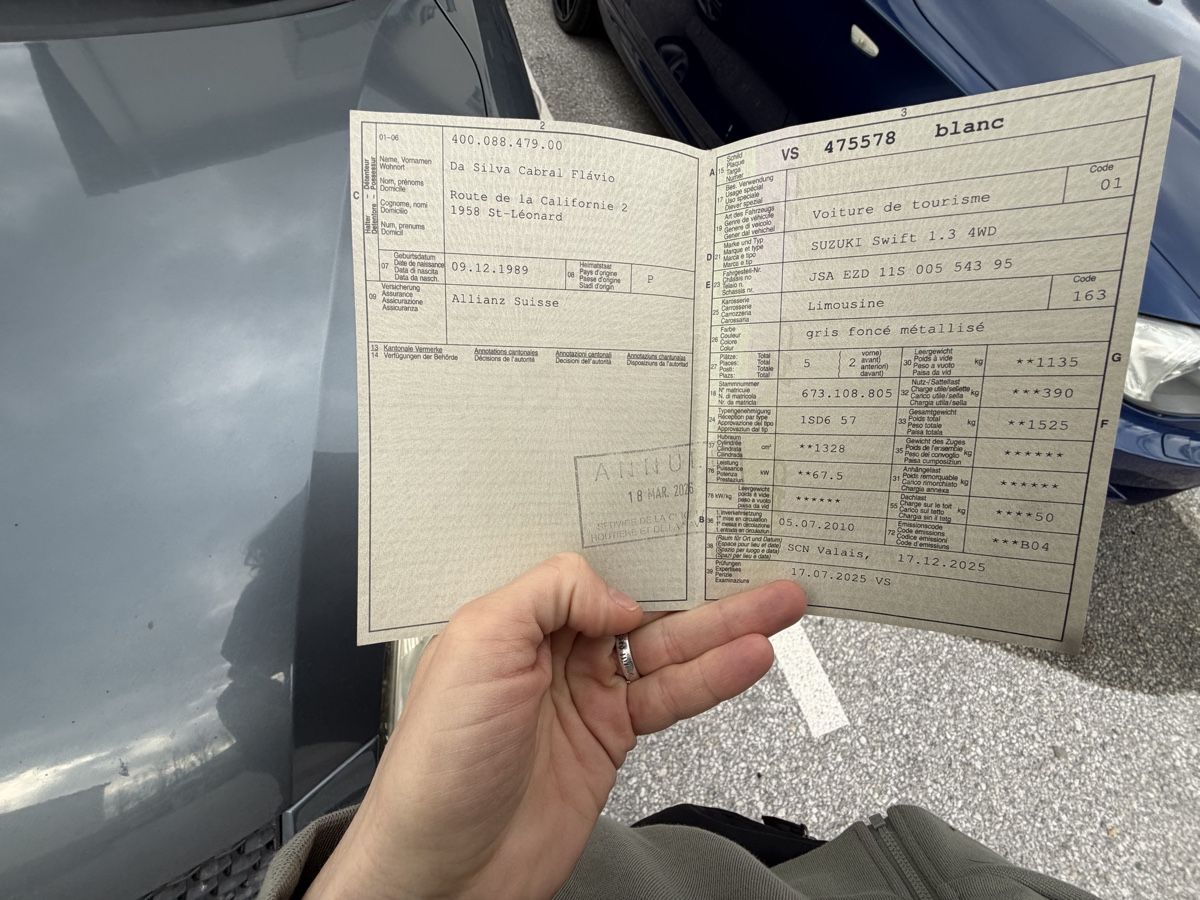 2
01-06
400.088.479.00
C
Halter – Détenteur
Detentore – Possessur
Name, Vornamen
Wohnort
Nom, prénoms
Domicile
Cognome, nomi
Domicilio
Num, prenums
Domicil
Da Silva Cabral Flávio
Route de la Californie 2
1958 St-Léonard
07
Geburtsdatum
Date de naissance
Data di nascita
Data da nasch.
09.12.1989
08
Heimatstaat
Pays d'origine
Paese d'origine
Stadi d'origin
P
09
Versicherung
Assurance
Assicurazione
Assicuranza
Allianz Suisse
13
14
Kantonale Vermerke
Verfügungen der Behörde
Annotations cantonales
Décisions de l'autorité
Annotazioni cantonali
Decisioni dell'autorità
Annotaziuns chantunalas
Disposiziuns da l'autoritad
ANNU
18 MAR. 2026
SERVICE DE LA CIRC
ROUTIÈRE ET DE LA NAV
3
A
15
Schild
Plaque
Targa
Numer
VS 475578 blanc
17
Bes. Verwendung
Usage spécial
Uso speciale
Diever spezial
19
Art des Fahrzeugs
Genre de véhicule
Genere di veicolo
Gener dal vehichel
Voiture de tourisme
Code
01
D
21
Marke und Typ
Marque et type
Marca e tipo
Marca e tip
SUZUKI Swift 1.3 4WD
E
23
Fahrgestell-Nr.
Châssis no
Telaio n.
Schassis nr.
JSA EZD 11S 005 543 95
25
Karosserie
Carrosserie
Carrozzeria
Carossaria
Limousine
Code
163
26
Farbe
Couleur
Colore
Colur
gris foncé métallisé
27
Plätze: Total
Places: Total
Posti: Totale
Plazs: Total
5
2
vorne)
avant)
anteriori)
davant)
30
Leergewicht
Poids à vide
Peso a vuoto
Paisa da vid
kg
**1135
G
18
Stammnummer
N° matricule
N. di matricola
Nr. da matricla
673.108.805
32
Nutz-/Sattellast
Charge utile/sellette
Carico utile/sella
Chargia utila/sella
kg
***390
24
Typengenehmigung
Réception par type
Approvazione del tipo
Approvaziun dal tip
1SD6 57
33
Gesamtgewicht
Poids total
Peso totale
Paisa totala
kg
**1525
F
37
Hubraum
Cylindrée
Cilindrata
Cilindrada
cm³
**1328
35
Gewicht des Zuges
Poids de l'ensemble
Peso del convoglio
Paisa cumposiziun
kg
******
76
Leistung
Puissance
Potenza
Prestaziun
kW
**67.5
31
Anhängelast
Poids remorquable
Carico rimorchiato
Chargia annexa
kg
******
78
kW/kg
Leergewicht
poids à vide
peso a vuoto
paisa da vid
******
55
Dachlast
Charge sur le toit
Carico sul tetto
Chargia sin il tetg
kg
****50
B
36
1. Inverkehrsetzung
1re mise en circulation
1a messa in circolazione
1. entrada en circulaziun
05.07.2010
72
Emissionscode
Code émissions
Codice emissioni
Code d'emissiuns
***B04
38
(Raum für Ort und Datum)
(Espace pour lieu et date)
(Spazio per luogo e data)
(Spazi per lieu e data)
SCN Valais, 17.12.2025
39
Prüfungen
Expertises
Perizie
Examinaziuns
17.07.2025 VS